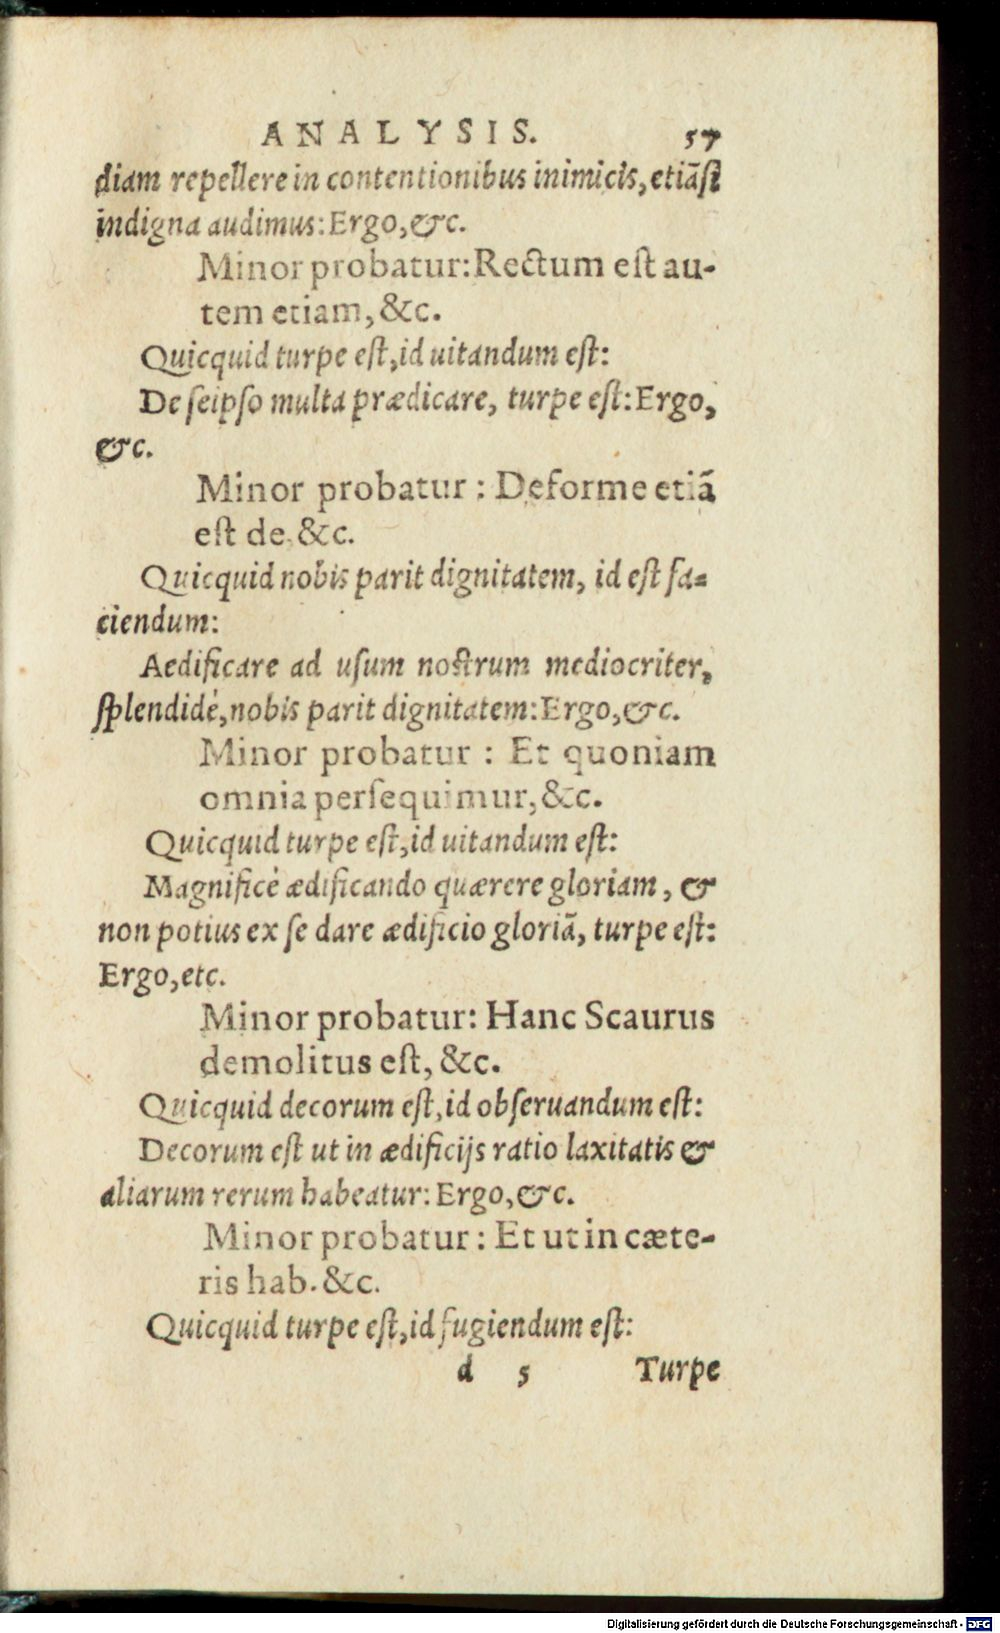 ANALYSIS. 57
diam repellere in contentionibus inimicis, etiãsi
indigna audimus: Ergo, &c.
Minor probatur: Rectum est au-
tem etiam, &c.
Quicquid turpe est, id uitandum est:
De seipso multa prædicare, turpe est: Ergo,
&c.
Minor probatur: Deforme etiã
est de. &c.
Quicquid nobis parit dignitatem, id est fa-
ciendum:
Aedificare ad usum nostrum mediocriter,
splendidè, nobis parit dignitatem: Ergo, &c.
Minor probatur: Et quoniam
omnia persequimur, &c.
Quicquid turpe est, id uitandum est:
Magnificè ædificando quærere gloriam, &
non potius ex se dare ædificio gloriã, turpe est:
Ergo, etc.
Minor probatur: Hanc Scaurus
demolitus est, &c.
Quicquid decorum est, id obseruandum est:
Decorum est ut in ædificijs ratio laxitatis &
aliarum rerum habeatur: Ergo, &c.
Minor probatur: Et ut in cæte-
ris hab. &c.
Quicquid turpe est, id fugiendum est:
d 5 Turpe
Digitalisierung gefördert durch die Deutsche Forschungsgemeinschaft - DFG